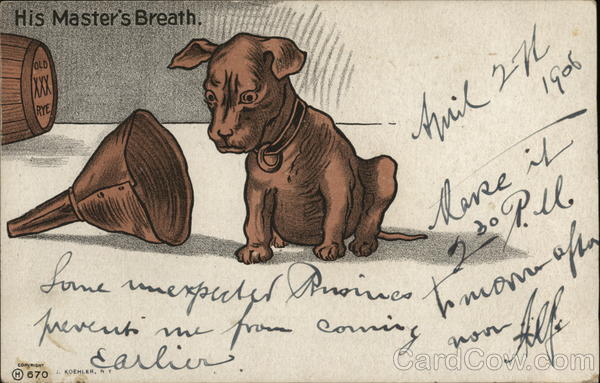 His Master's Breath.
OLD
XXX
RYE
April 2
1906
Make it
2 30 P.M.
tomorrow after
noon Alf.
Some unexpected Business
prevents me from coming
Earlier.
COPYRIGHT
H 670 J. KOEHLER, N.Y.
CardCow.com